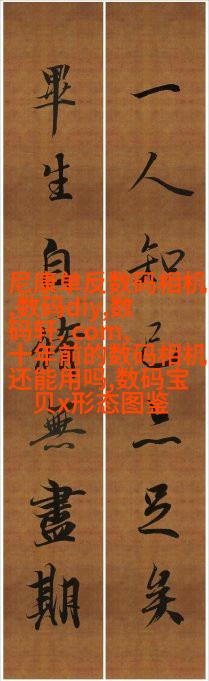 一人知己亦足矣
畢生自脩無盡期
尼康单反数码相机
,数码diy,数
码轩.com,
十年前的数码相机
还能用吗,数码宝
贝x形态图鉴